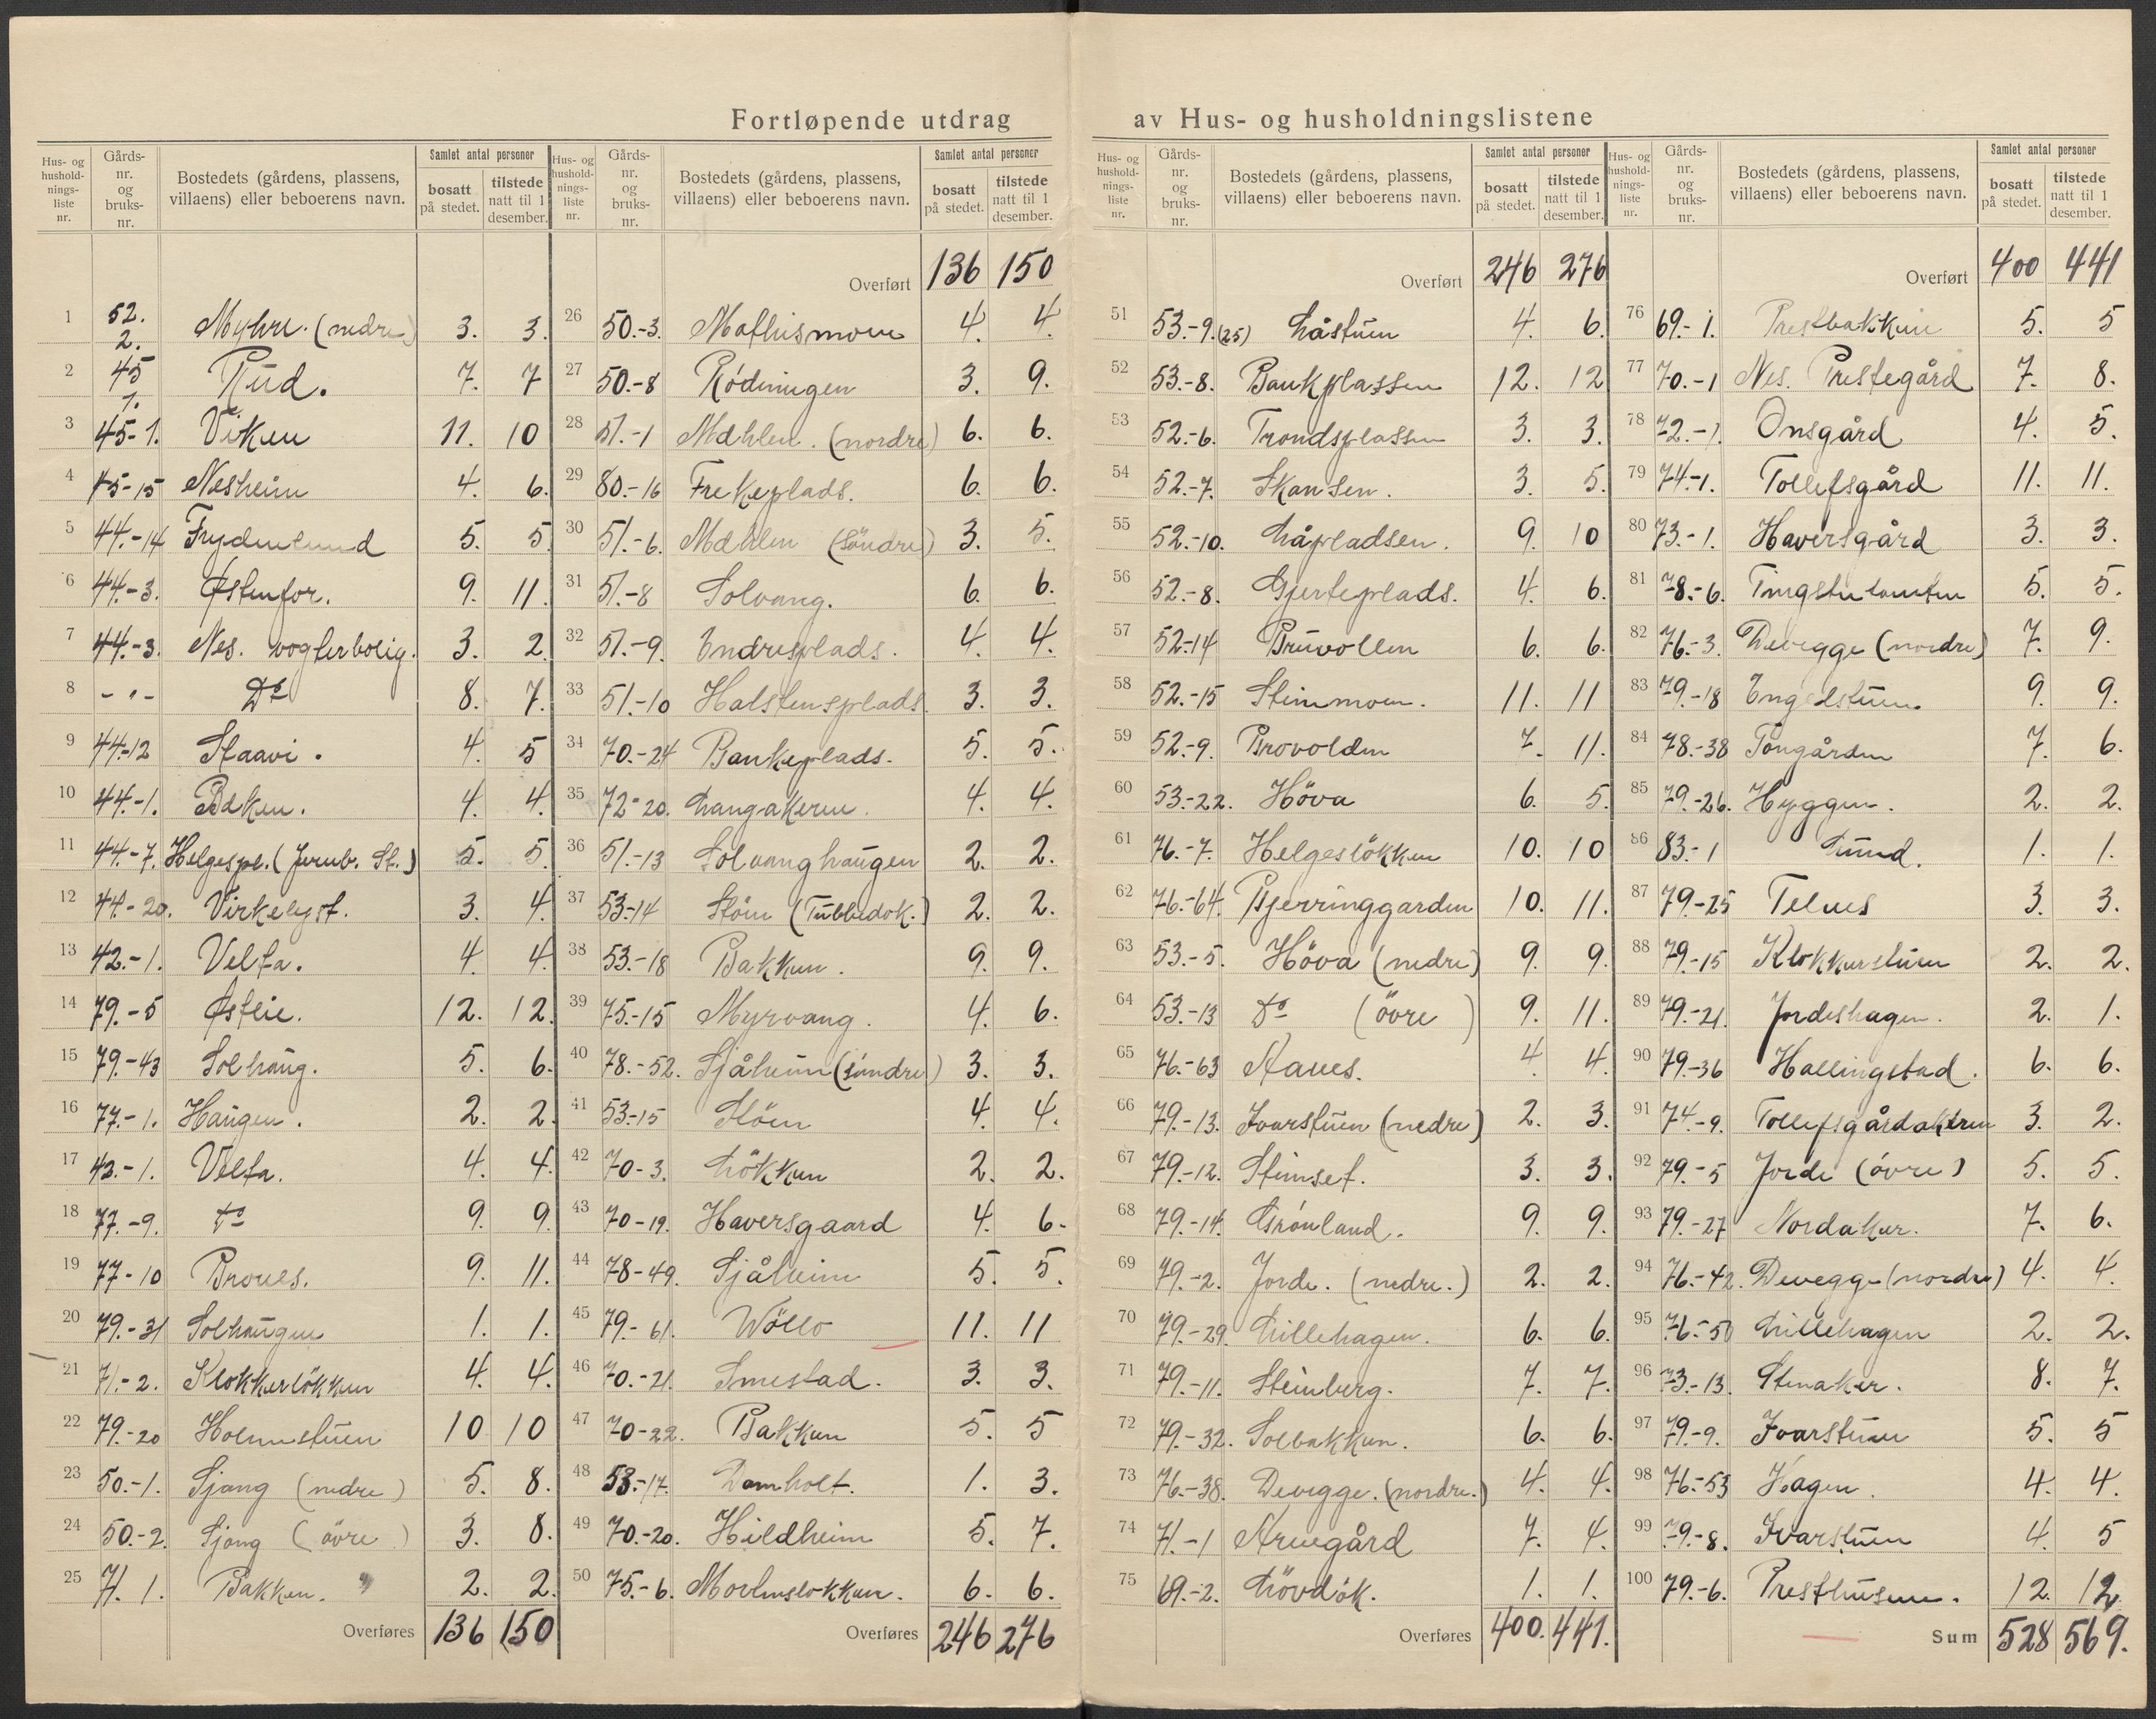 Fortløpende utdrag av Hus- og husholdningslistene
Hus- og husholdningsliste nr. Gårdsnr. og bruksnr. Bostedets (gårdens, plassens, villaens) eller beboerens navn. Samlet antal personer bosatt på stedet. tilstede natt til 1 desember.
1 52. 2. Myhre. (nedre) 3. 3.
2 45 1. Rud. 7. 7
3 45-1. Viken 11. 10
4 45-15 Nesheim 4. 6.
5 44.-14 Frydenlund 5. 5
6 44.-3. Østenfor. 9. 11.
7 44.-3. Nes. vogterbolig. 3. 2
8 - " - Do 8. 7.
9 44.-12 Staavi. 4. 5
10 44.-1. Bakken. 4. 4.
11 44.-7. Helgespl. (Jernb. St.) 5. 5.
12 44.-20. Virkelyst. 3. 4.
13 42.-1. Velta. 4. 4.
14 79.-5 Østlie. 12. 12.
15 79.-43 Solhaug. 5. 6.
16 77.-1. Haugen. 2. 2
17 42.-1. Velta. 4. 4.
18 77.-9. Do 9. 9.
19 77-10 Brones. 9. 11.
20 79.-31 Solhaugen 1. 1.
21 71.-2. Klokkerlökken 4. 4.
22 79.-20 Holmestuen 10 10
23 50.-1. Sjong (nedre) 5. 8.
24 50.-2. Sjong (övre) 3. 8.
25 71. 1. Bakken. " 2. 2.
Overføres 136 150
Hus- og husholdningsliste nr. Gårdsnr. og bruksnr. Bostedets (gårdens, plassens, villaens) eller beboerens navn. Samlet antal personer bosatt på stedet. tilstede natt til 1 desember.
Overført 136 150
26 50.-3. Mathismoen 4. 4.
27 50.-8 Rödningen 3. 9.
28 51.-1 Mæhlen. (nordre) 6. 6.
29 80.-16 Frekeplads. 6. 6.
30 51.-6. Mæhlen (söndre) 3. 5.
31 51.-8 Solvang. 6. 6.
32 51.-9. Endresplads. 4. 4.
33 51.-10 Halstensplads. 3. 3.
34 70.-24 Bankeplads. 5. 5.
35 72-20. Langakeren. 4. 4.
36 51.-13 Solvanghaugen 2. 2.
37 53.-14 Stöen (Tubbedok.) 2. 2.
38 53.-18 Bakken. 9. 9.
39 75.-15 Myrvang. 4. 6.
40 78.-52. Sjåheim (söndre) 3. 3.
41 53.-15 Stöen 4. 4.
42 70-3. Lökken 2. 2.
43 70-19. Haversgaard 4. 6.
44 78-49. Sjåheim 5. 5.
45 79.-61. Wöllo 11. 11
46 70.-21. Smestad. 3. 3.
47 70-22. Bakken 5. 5
48 53.-17. Damholt. 1. 3.
49 70.-20. Hildheim 5. 7.
50 75.-6. Mortenslokken. 6. 6.
Overføres 246 276
Hus- og husholdningsliste nr. Gårdsnr. og bruksnr. Bostedets (gårdens, plassens, villaens) eller beboerens navn. Samlet antal personer bosatt på stedet. tilstede natt til 1 desember.
Overført 246 276
51 53.-9. (25) Låstuen 4. 6.
52 53.-8. Bankplassen 12. 12
53 52.-6. Trondsplassen 3. 3.
54 52.-7. Skansen. 3. 5.
55 52.-10. Låpladsen. 9. 10
56 52.-8. Gjerteplads. 4. 6.
57 52.-14 Bruvollen 6. 6.
58 52.-15 Steinmoen. 11. 11
59 52.-9. Brovolden 7. 11.
60 53.-22. Höva 6. 5.
61 76.-7. Helgeslökken 10. 10
62 76.-64. Bjerringgarden 10. 11.
63 53.-5. Höva (nedre) 9. 9.
64 53.-13 Do (övre) 9. 11.
65 76.-63 Aanes. 4. 4.
66 79.-13. Ivarstuen (nedre) 2. 3.
67 79.-12. Steinset. 3. 3.
68 79.-14. Grönland. 9. 9.
69 79.-2. Jorde. (nedre.) 2. 2.
70 79.-29. Lillehagen. 6. 6.
71 79.-11. Steinberg. 7. 7.
72 79.-32. Solbakken. 6. 6.
73 76.-38. Devegge. (nordre.) 4. 4.
74 71.-1 Arnegård 7. 4.
75 69.-2. Lövdök. 1. 1.
Overføres 400. 441.
Hus- og husholdningsliste nr. Gårdsnr. og bruksnr. Bostedets (gårdens, plassens, villaens) eller beboerens navn. Samlet antal personer bosatt på stedet. tilstede natt til 1 desember.
Overført 400 441
76 69.-1. Prestbakken 5. 5
77 70.-1 Nes. Prestegård 7. 8.
78 72.-1. Onsgård 4. 5.
79 74.-1. Tollefsgård 11. 11.
80 73.-1. Haversgård 3. 3.
81 78.-6. Tingstutomten 5. 5.
82 76.-3. Devegge (nordre) 7. 9.
83 79.-18 Engelstuen. 9. 9.
84 78.-38 Tongården 7. 6.
85 79.-26. Hyggen. 2. 2.
86 83.-1 Lund. 1. 1.
87 79.-25 Telnes 3. 3.
88 79.-15 Klokkerstuen 2. 2.
89 79.-21. Jordeshagen. 2. 1.
90 79.-36 Hallingstad. 6. 6.
91 74.-9. Tollefsgårdakeren 3. 2.
92 79.-5 Jorde (övre) 5. 5.
93 79.-27 Nordaker. 7. 6.
94 76.-42. Devegge (nordre) 4. 4.
95 76.-50 Lillehagen 2. 2.
96 73.-13. Stenaker. 8. 7.
97 79.-9. Ivarstuen 5. 5
98 76.-53 Hagen. 4. 4.
99 79.-8. Ivarstuen 4. 5
100 79.-6. Presthusene. 12. 12
Sum 528 569.